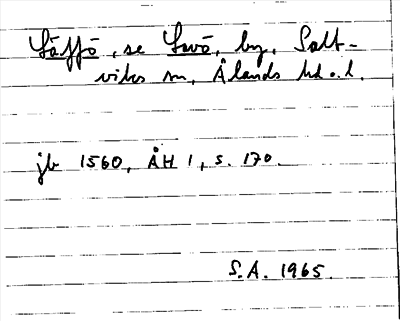 Säffö, se Savö, by, Salt-
viks sn, Ålands hd o. l.
jb 1560, ÅH 1, s. 170.
S.A. 1965.